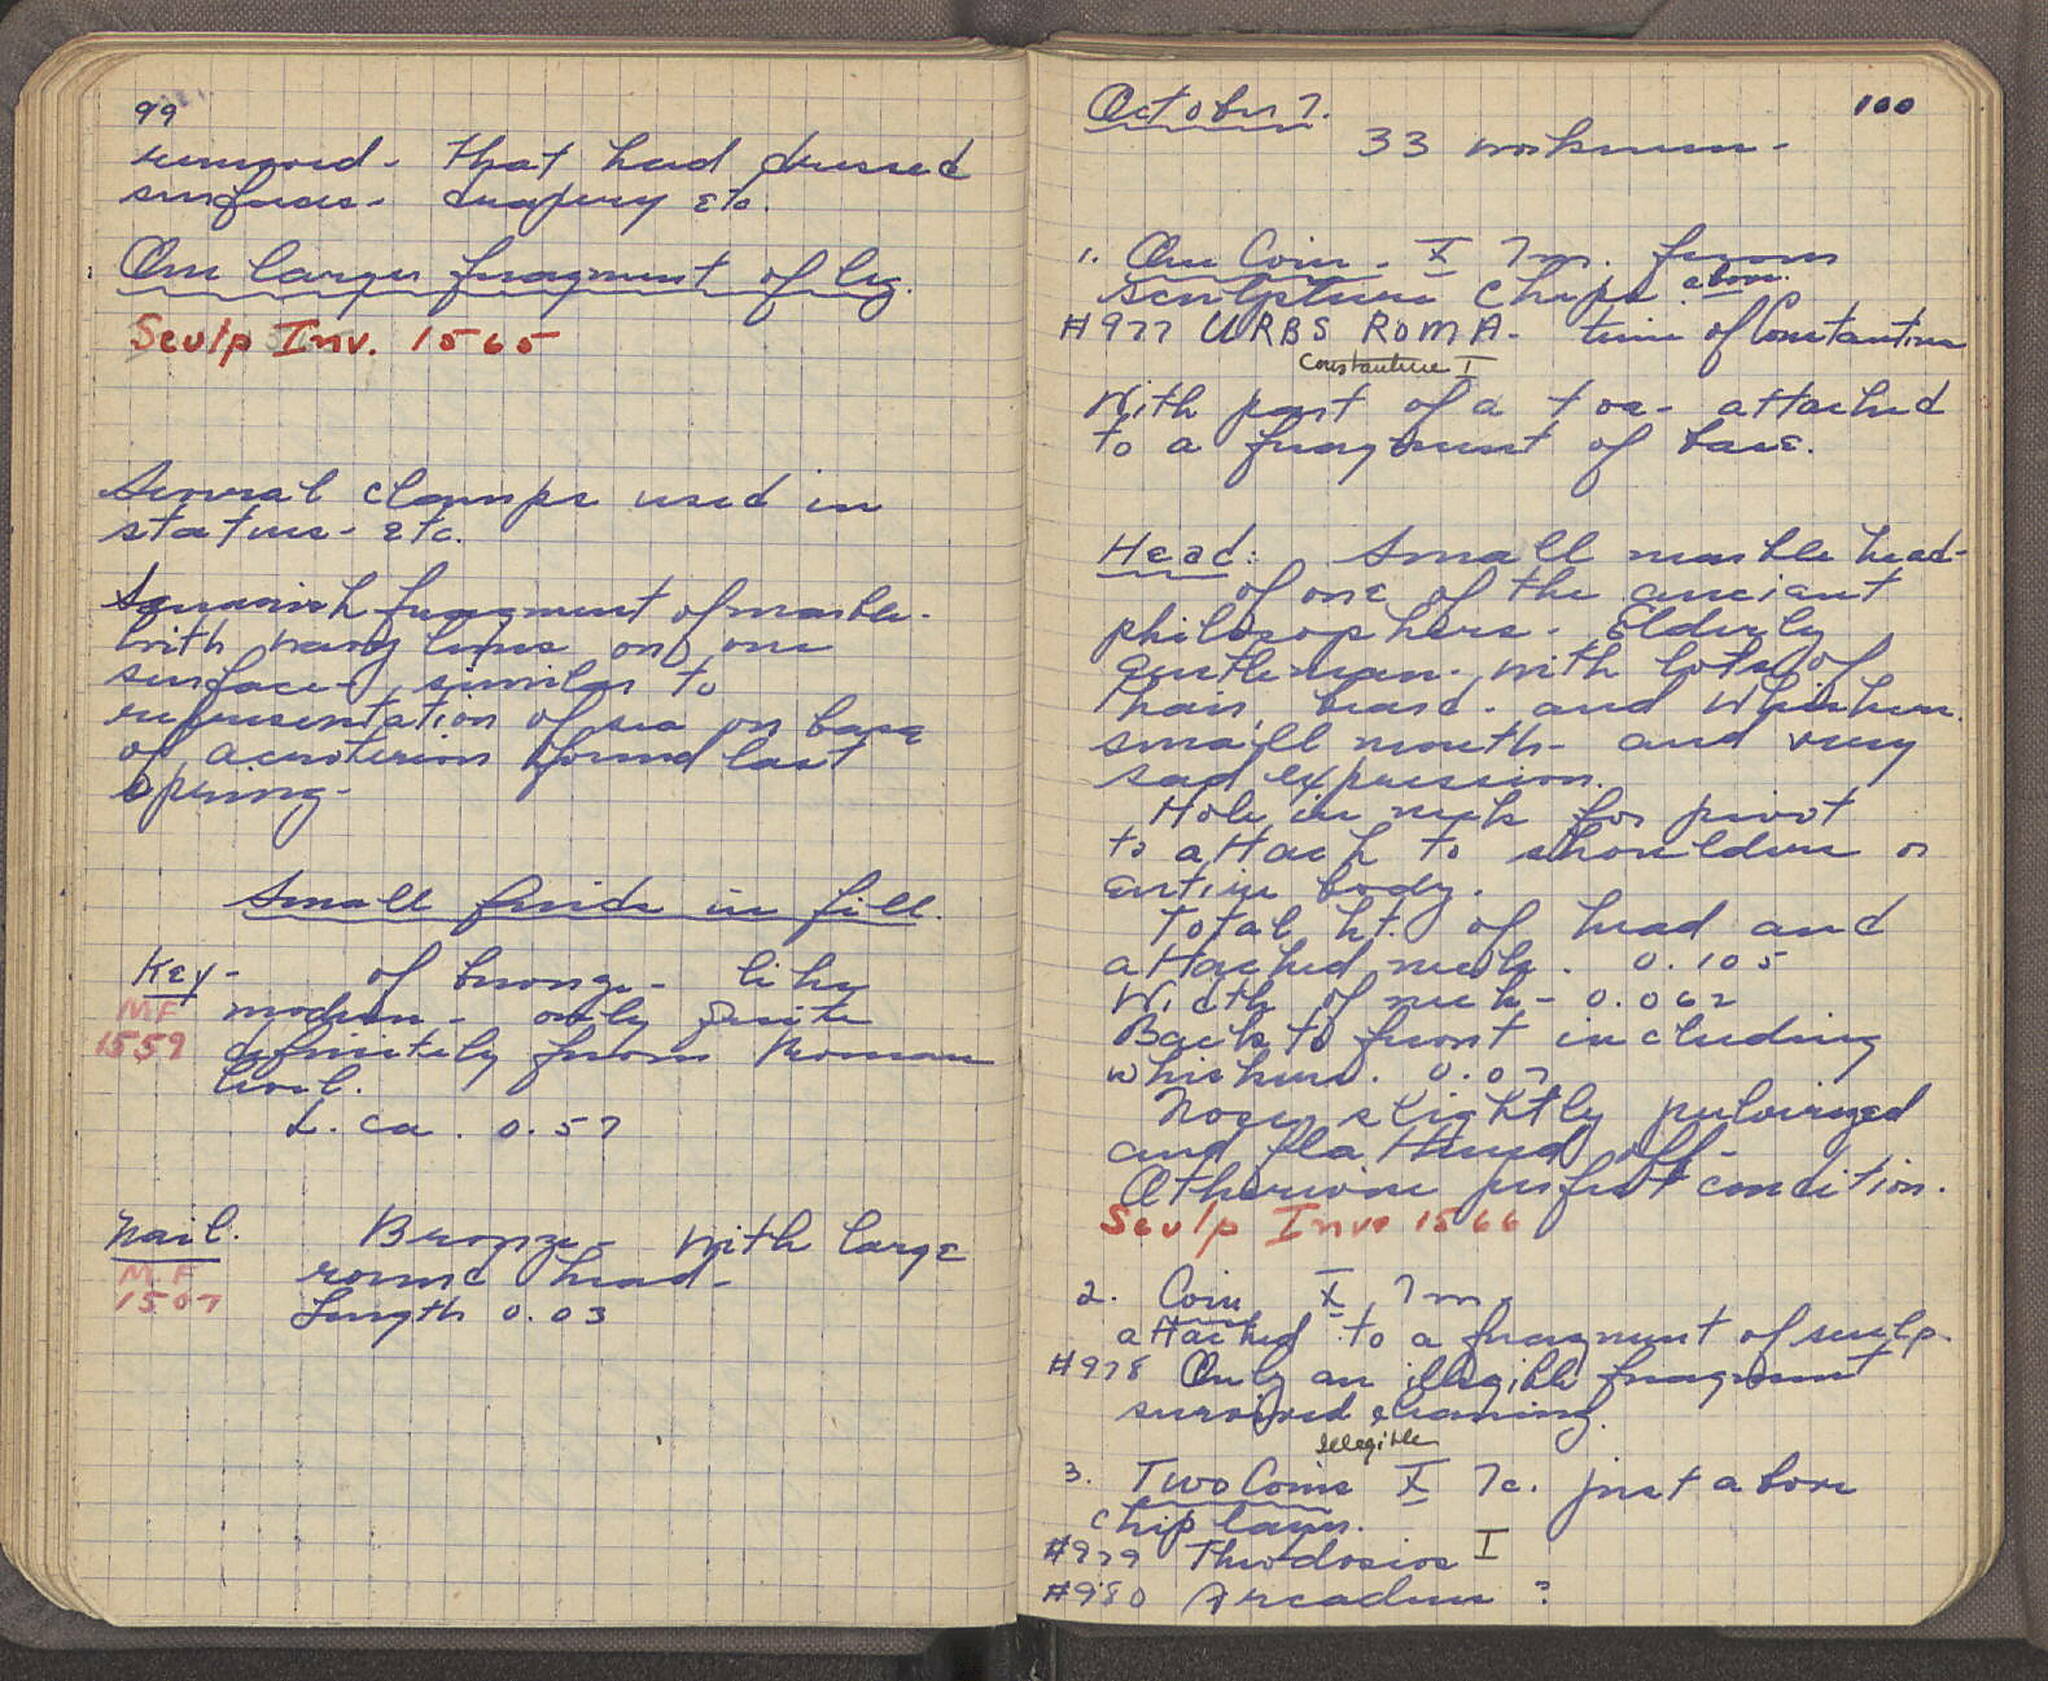 99
removed - that had dressed
surfaces - drapery etc.
One larger fragment of leg.
Sculp Inv. 1565
Several clamps used in
statues - etc.
Squarish fragment of marble -
with wavy lines on one
surface - similar to
representation of sea on base
of acroterion found last
spring -
Small finds in fill.
Key - of bronze - like
MF
modern - only quite
1559
definitely from Roman
level.
L. ca. 0.57
Nail. Bronze - with large
MF
round head -
1507
Length 0.03
October 7. 100
33 workmen -
1. One Coin - X 7m. from
sculpture chips above.
#977 URBS ROMA - time of Constantine
Constantine I
With part of a toe - attached
to a fragment of base.
Head: Small marble head -
of one of the ancient
philosophers - Elderly
gentleman - with lots of
hair, beard - and whiskers.
small mouth - and very
sad expression.
Hole in neck for pivot
to attach to shoulders or
entire body.
Total ht. of head and
attached neck. 0.105
Width of neck - 0.062
Back to front including
whiskers. 0.07
Nose slightly pulverized
and flattened off -
Otherwise perfect condition.
Sculp Inv. 1566
2. Coin X 7m.
attached to a fragment of sculp.
#978 Only an illegible fragment
survived cleaning.
illegible
3. Two Coins X 7c. just above
chip layer.
#979 Theodosios I
#980 Arcadius ?